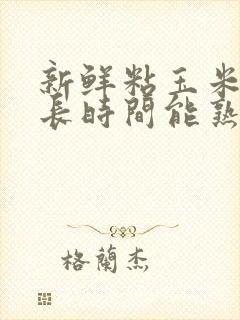 新鮮粘玉米
長時間能熟
格蘭杰